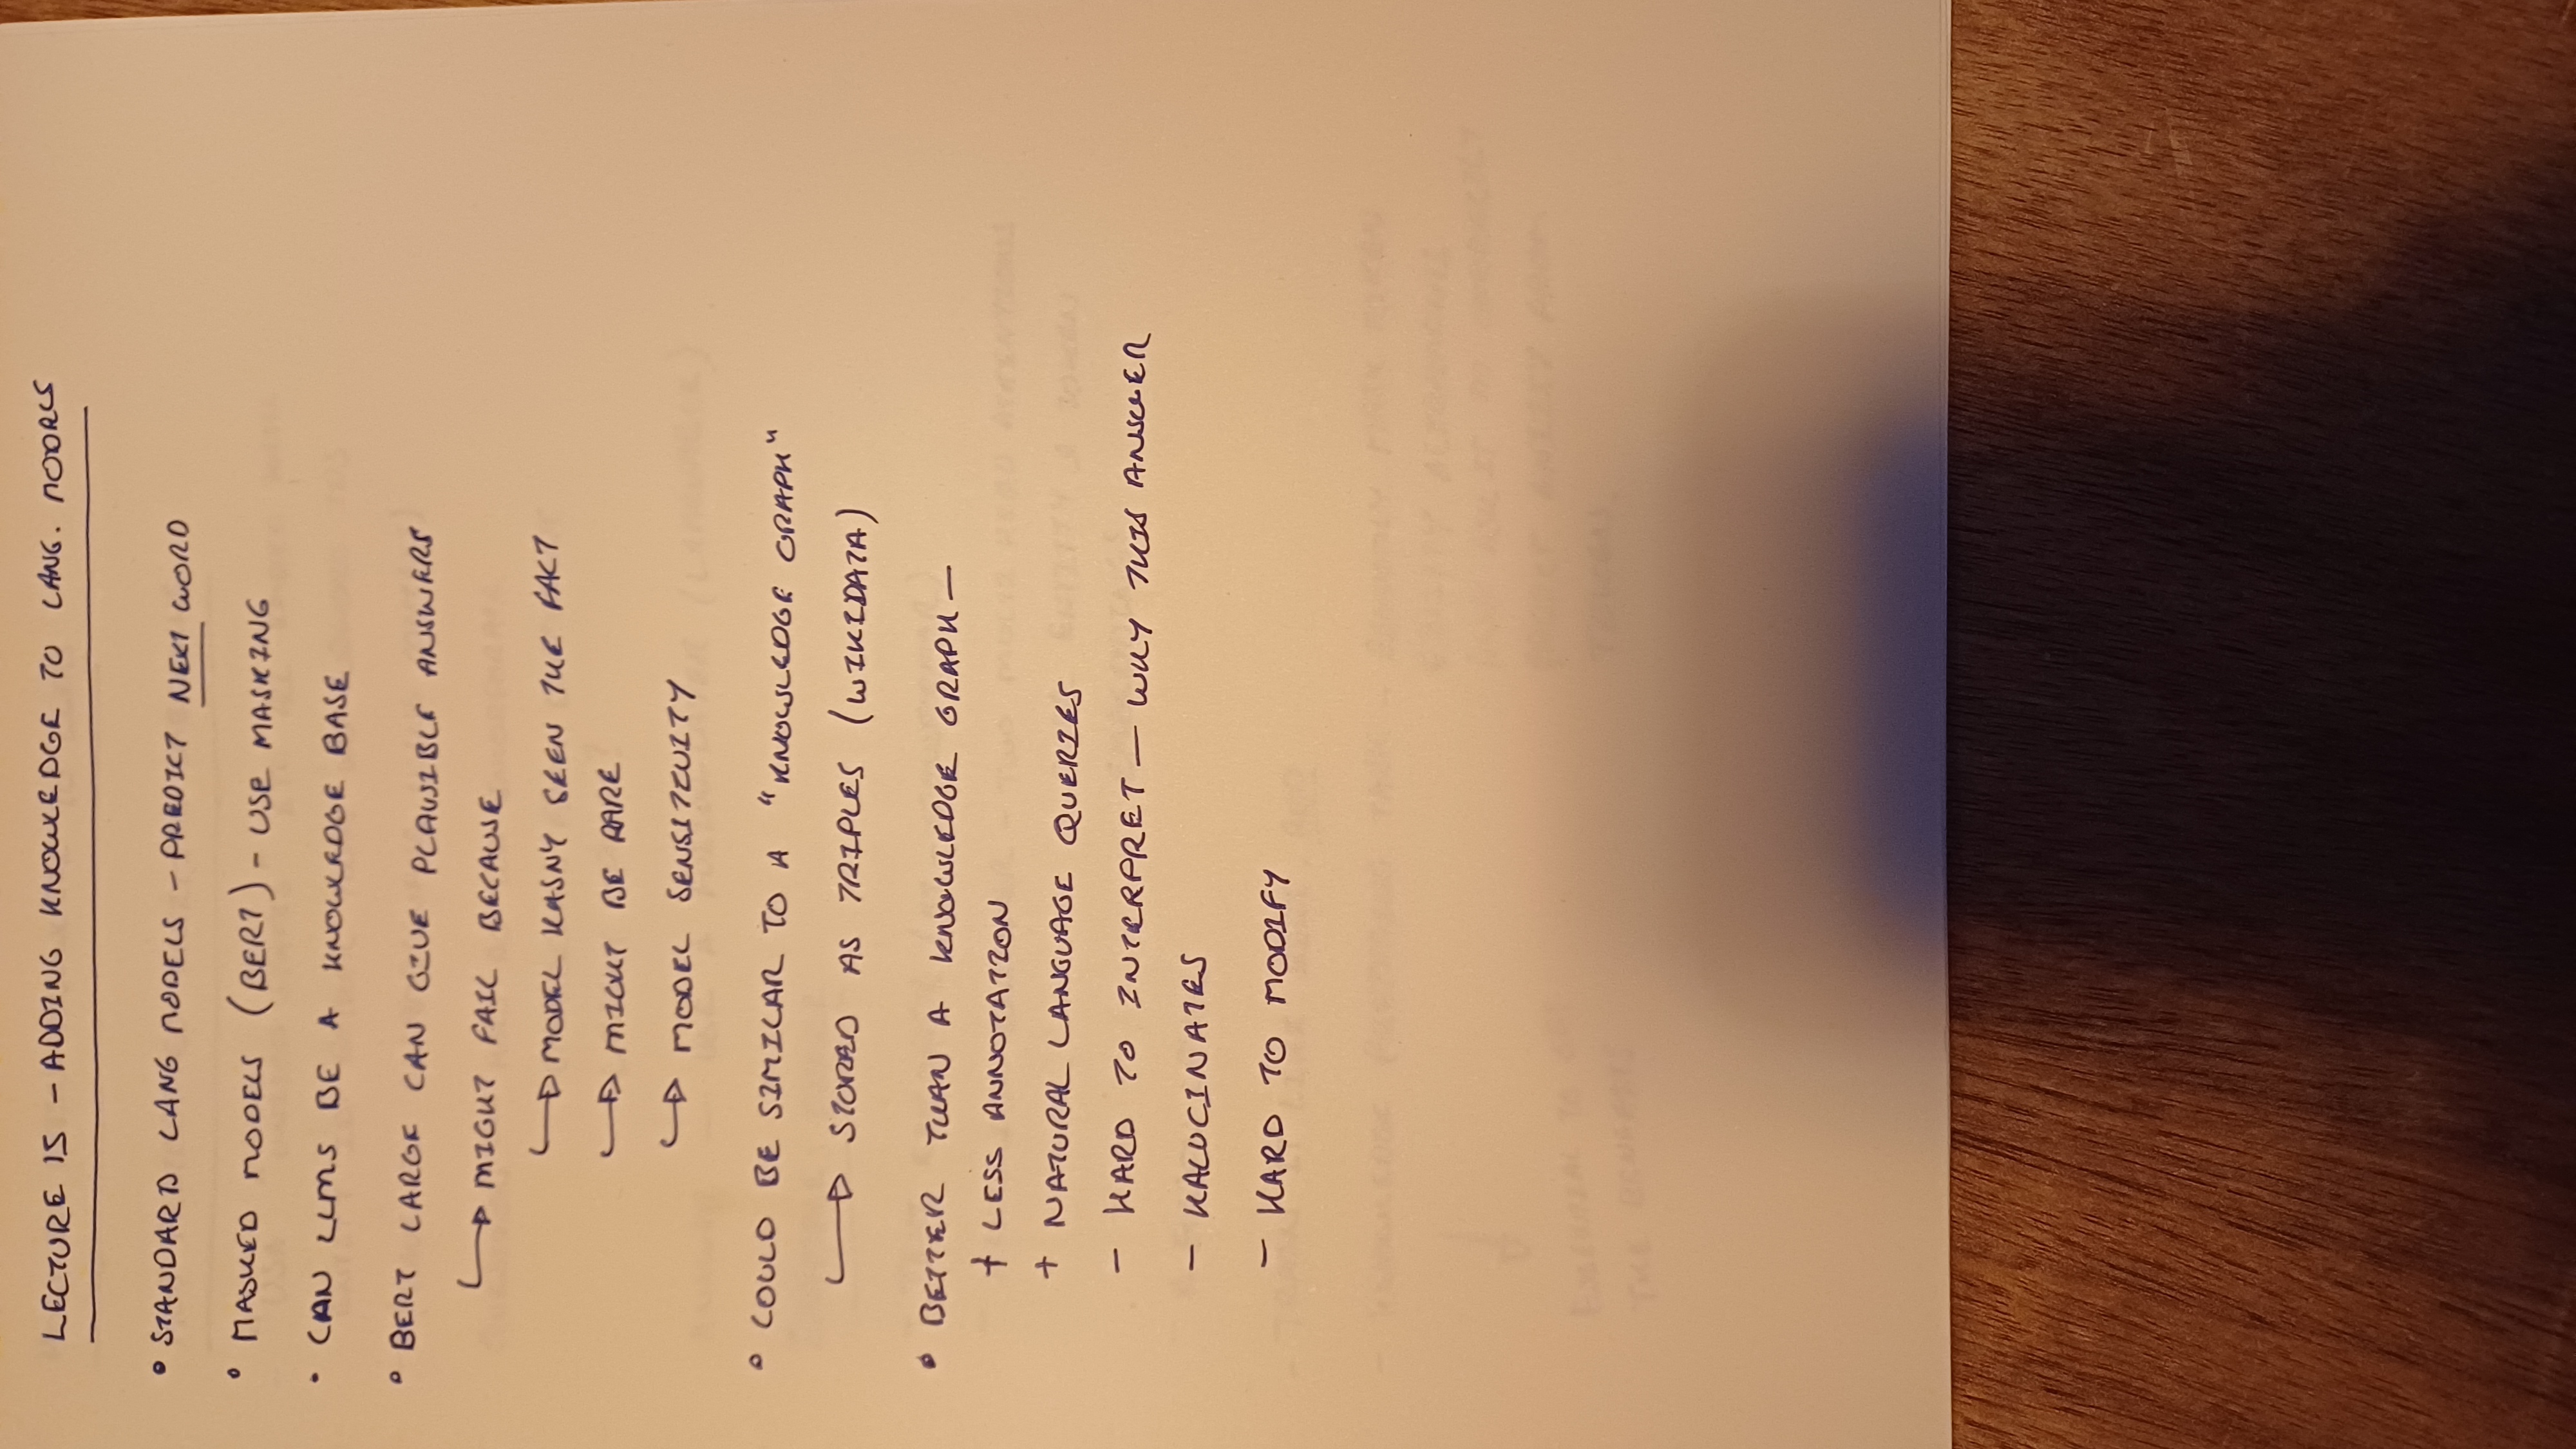 LECTURE 15 - ADDING KNOWLEDGE TO LANG. MODELS
• STANDARD LANG MODELS - PREDICT NEXT WORD
• MASKED MODELS (BERT) - USE MASKING
• CAN LLMS BE A KNOWLEDGE BASE
• BERT LARGE CAN GIVE PLAUSIBLE ANSWERS
↳ MIGHT FAIL BECAUSE
↳ MODEL HASNT SEEN THE FACT
↳ MIGHT BE RARE
↳ MODEL SENSITIVITY
• COULD BE SIMILAR TO A "KNOWLEDGE GRAPH"
↳ STORED AS TRIPLES (WIKIDATA)
• BETTER THAN A KNOWLEDGE GRAPH —
+ LESS ANNOTATION
+ NATURAL LANGUAGE QUERIES
- HARD TO INTERPRET — WHY THIS ANSWER
- HALUCINATES
- HARD TO MODIFY